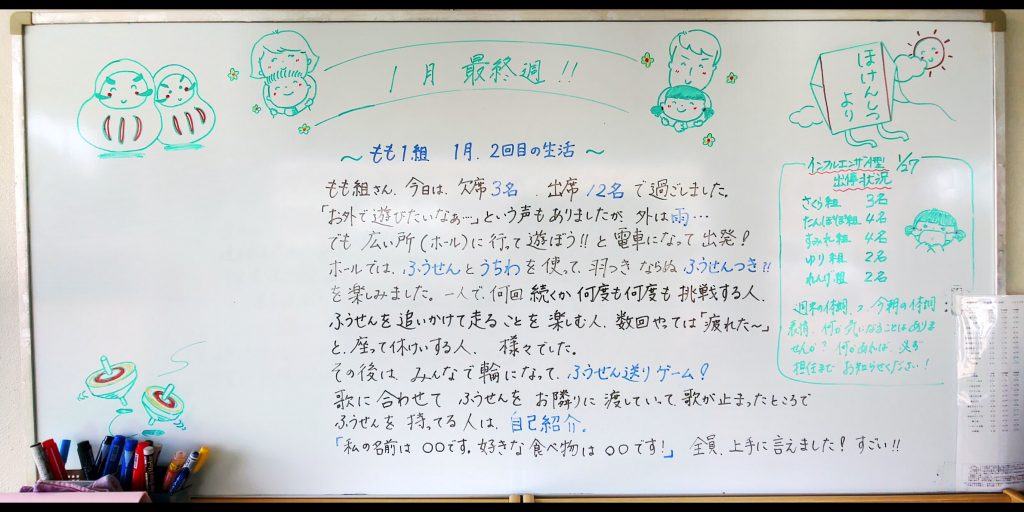 1月 最終週!!
〜 もも1組 1月、2回目の生活 〜
もも組さん、今日は、欠席3名、出席12名で過ごしました。
「お外で遊びたいなぁ…」という声もありましたが、外は雨…
でも 広い所(ホール)に行って遊ぼう!!と電車になって出発!
ホールでは、ふうせんとうちわを使って、羽つきならぬふうせんつき!!
を楽しみました。一人で、何回続くか何度も何度も挑戦する人、
ふうせんを追いかけて走ることを楽しむ人、数回やっては「疲れた〜」
と、座って休けいする人、様々でした。
その後は、みんなで輪になって、ふうせん送りゲーム!
歌に合わせて ふうせんを お隣りに渡していって、歌が止まったところで
ふうせんを持ってる人は、自己紹介。
「私の名前は〇〇です。好きな食べ物は〇〇です!」 全員、上手に言えました! すごい!!
ほけんしつ
より
インフルエンザ 1/27
出停状況
さくら組 3名
たんぽぽ組 4名
すみれ組 4名
ゆり組 2名
れんげ組 2名
週末の体調、今朝の体調
表情、何か気になることはありま
せんか? 何かあれば、必ず
担任まで お知らせください!